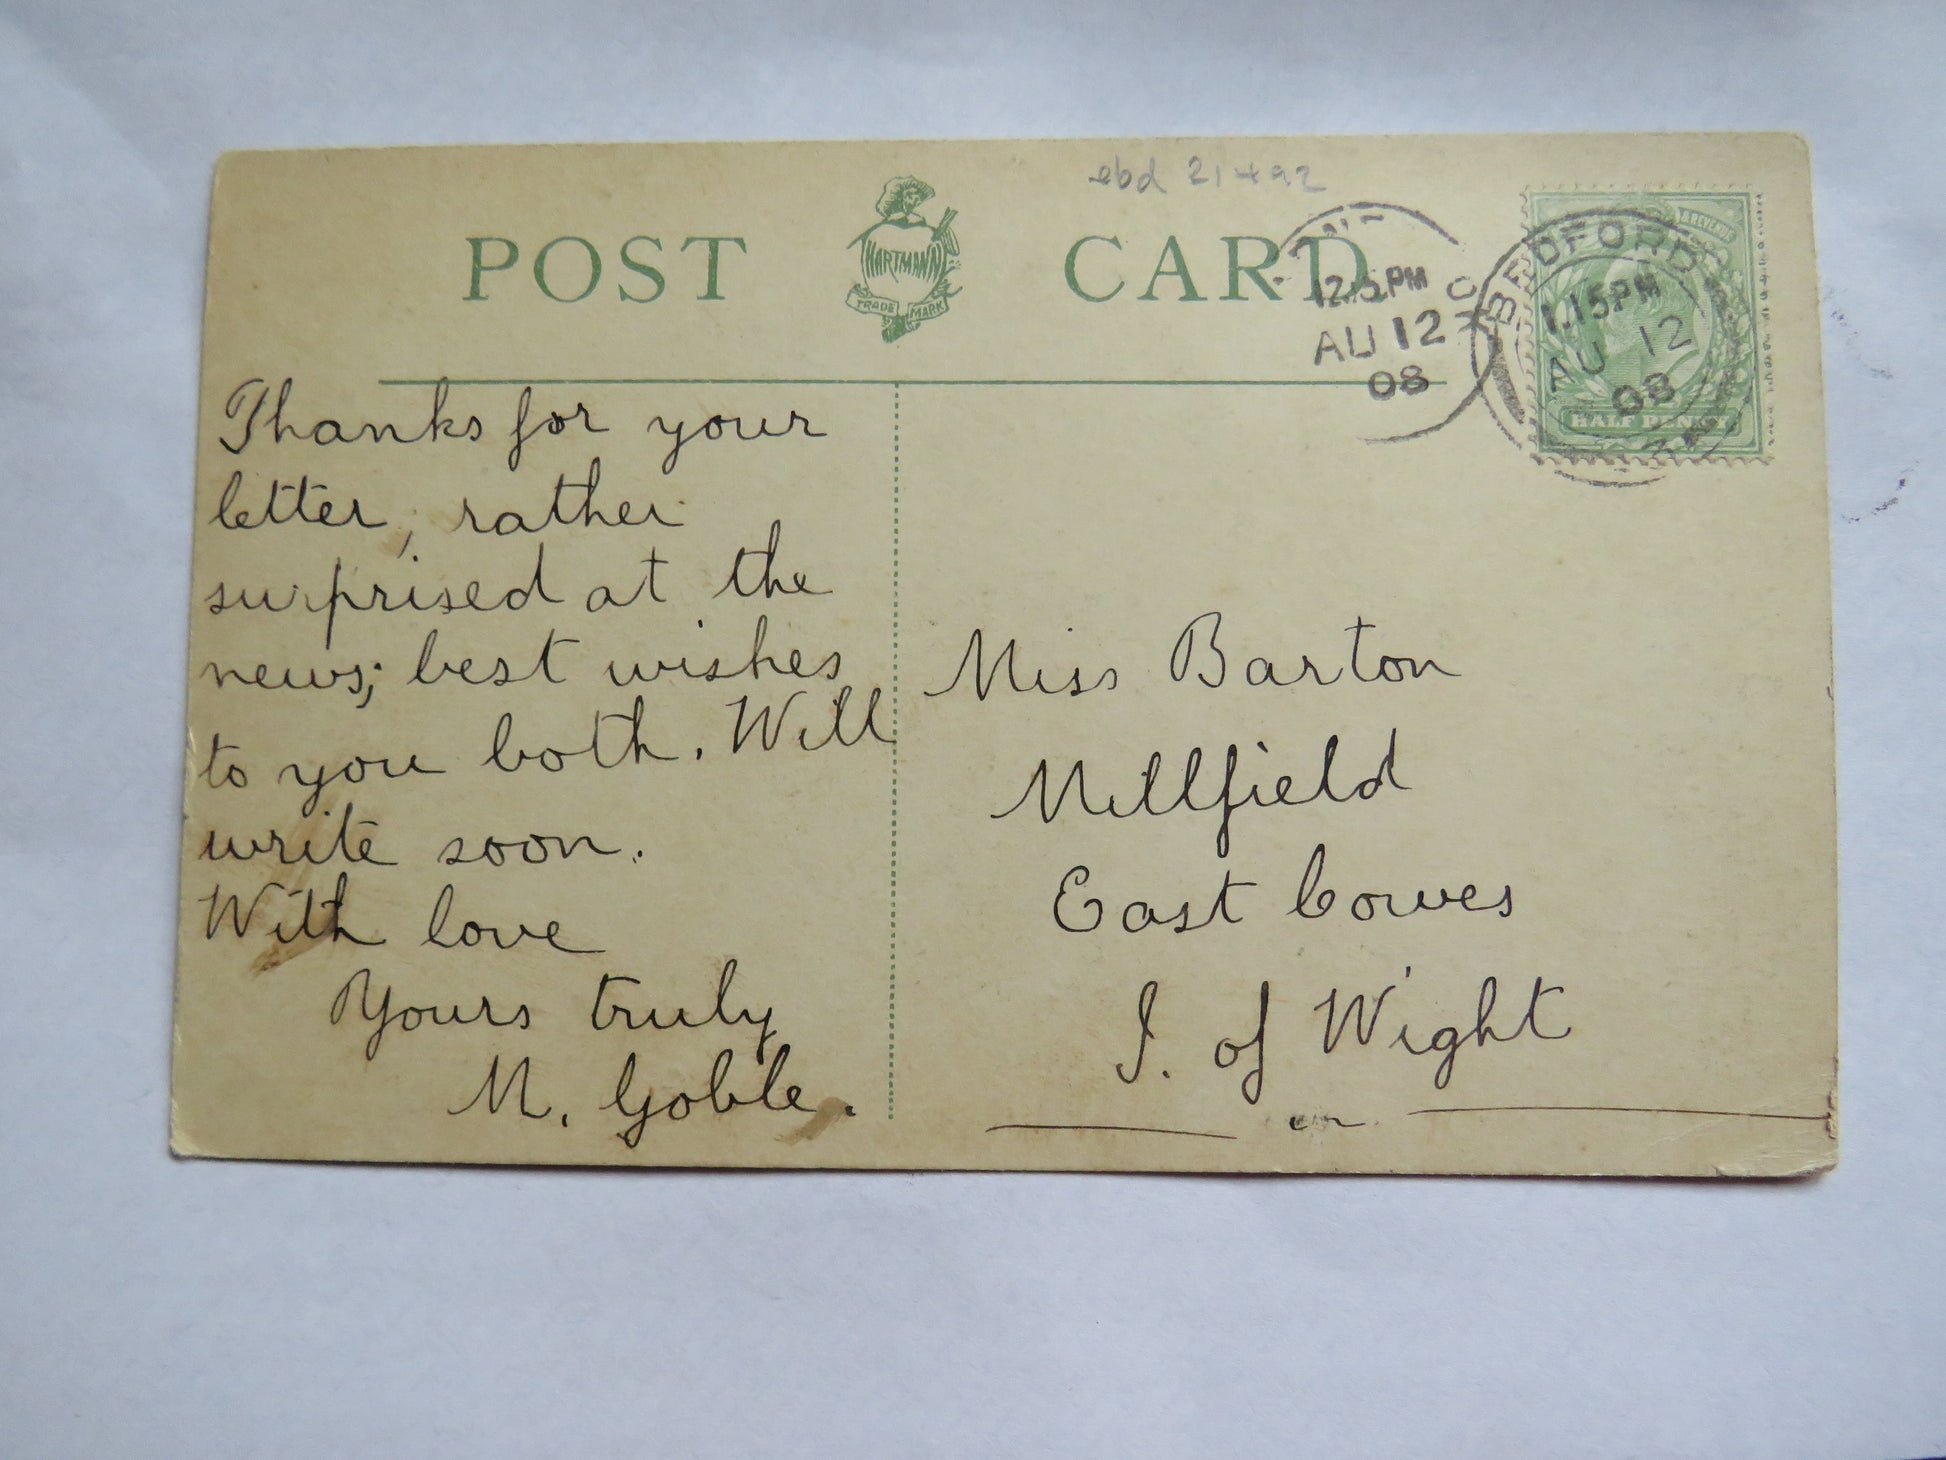 ebd 21492
POST CARD
HARTMANN
TRADE MARK
12.15PM
AU 12
08
BEDFORD
1.15PM
AU 12
08
HALF PENNY
Thanks for your
letter, rather
surprised at the
news; best wishes
to you both. Will
write soon.
With love
Yours truly
M. Goble.
Miss Barton
Millfield
East Cowes
I. of Wight